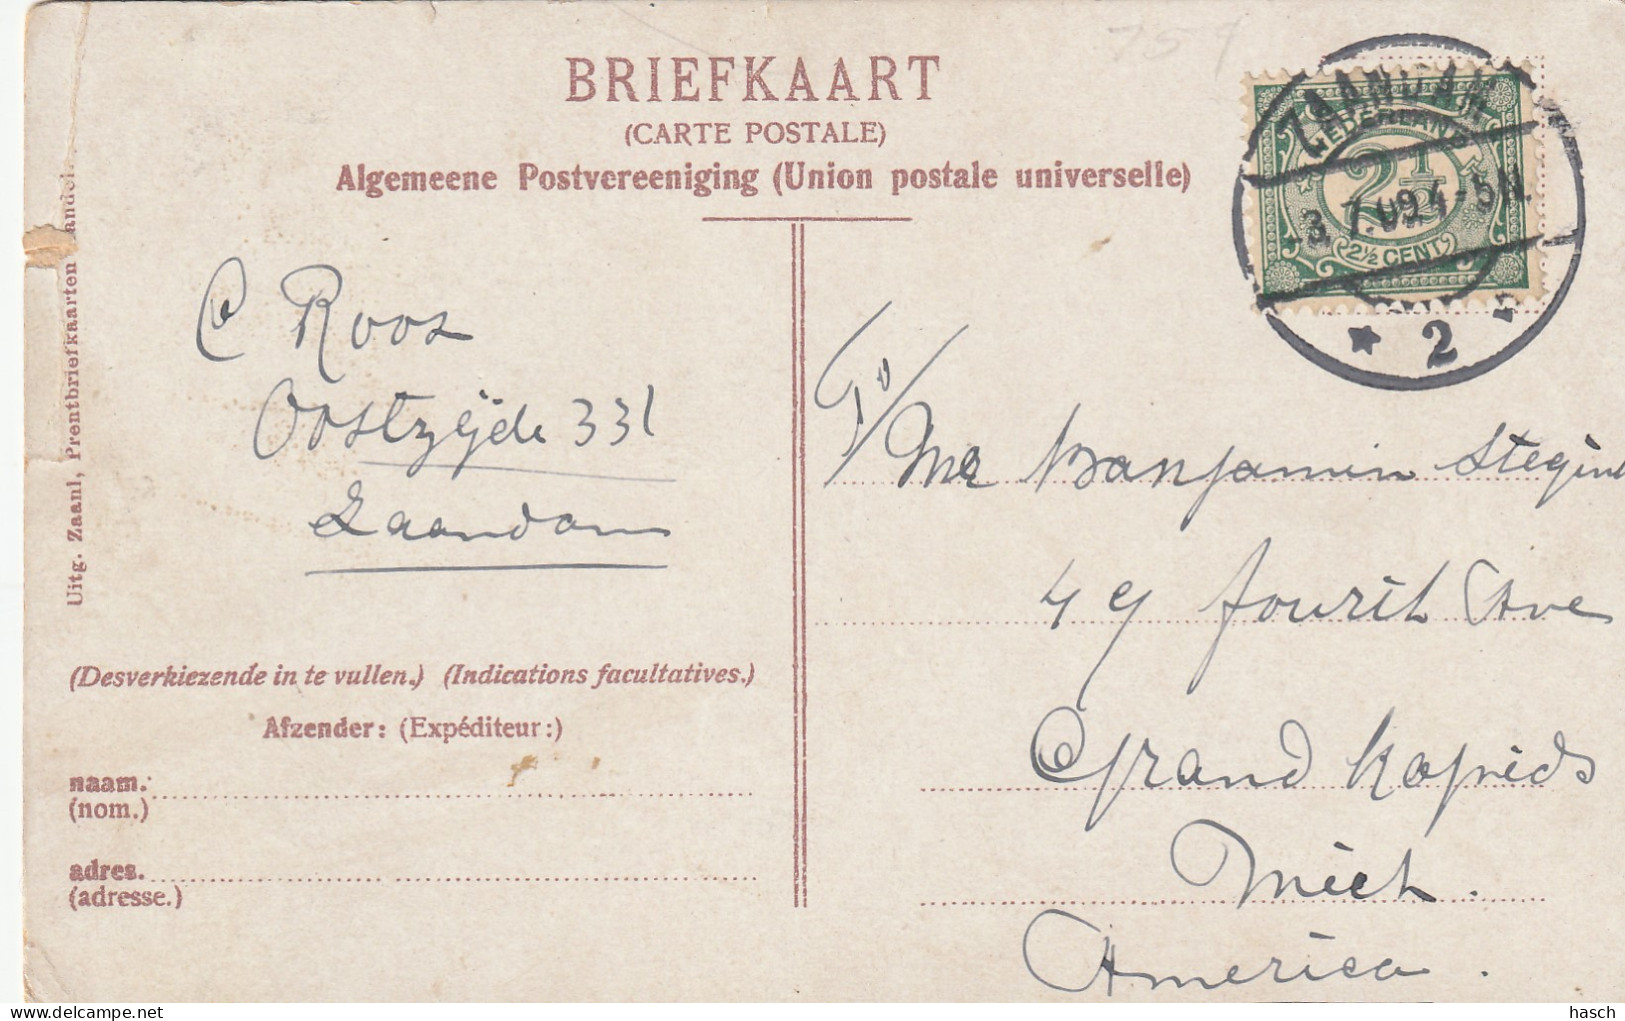 759
BRIEFKAART
(CARTE POSTALE)
Algemeene Postvereeniging (Union postale universelle)
ZAANDAM
NEDERLAND
2½
2½ CENT
8. 7.09.4-5N.
2
Uitg. Zaanl, Prentbriefkaarten
C Roos
Oostzijde 331
Zaandam
To/
Mr Banjamin Stegin
49 fourth Ave
Grand Rapids
Mich.
America.
(Desverkiezende in te vullen.) (Indications facultatives.)
Afzender: (Expéditeur:)
naam.
(nom.)
adres.
(adresse.)
hasch